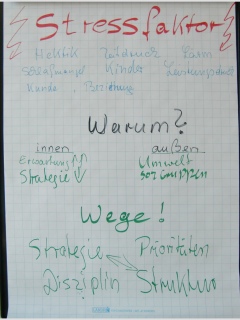 Stressfaktor
Hektik Zeitdruck Lärm
Schlafmangel Kinder Leistungsdruck
Kunde Beziehung
Warum?
innen außen
Erwartung ↑↑ Umwelt
Strategie ↓ soz Gruppen
Wege!
Strategie Prioritäten
Disziplin Struktur